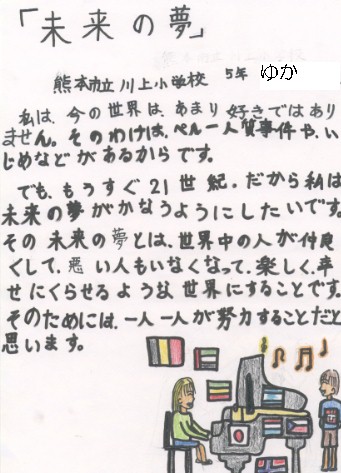 「未来の夢」
熊本市立川上小学校 5年 ゆか
私は、今の世界は、あまり好きではあり
ません。そのわけは、ペルー人質事件や、い
じめなどがあるからです。
でも、もうすぐ21世紀。だから私は
未来の夢がかなうようにしたいです。
その未来の夢とは、世界中の人が仲良
くして、悪い人もいなくなって、楽しく、幸
せにくらせるような世界にすることです。
そのためには、一人一人が努力することだと
思います。